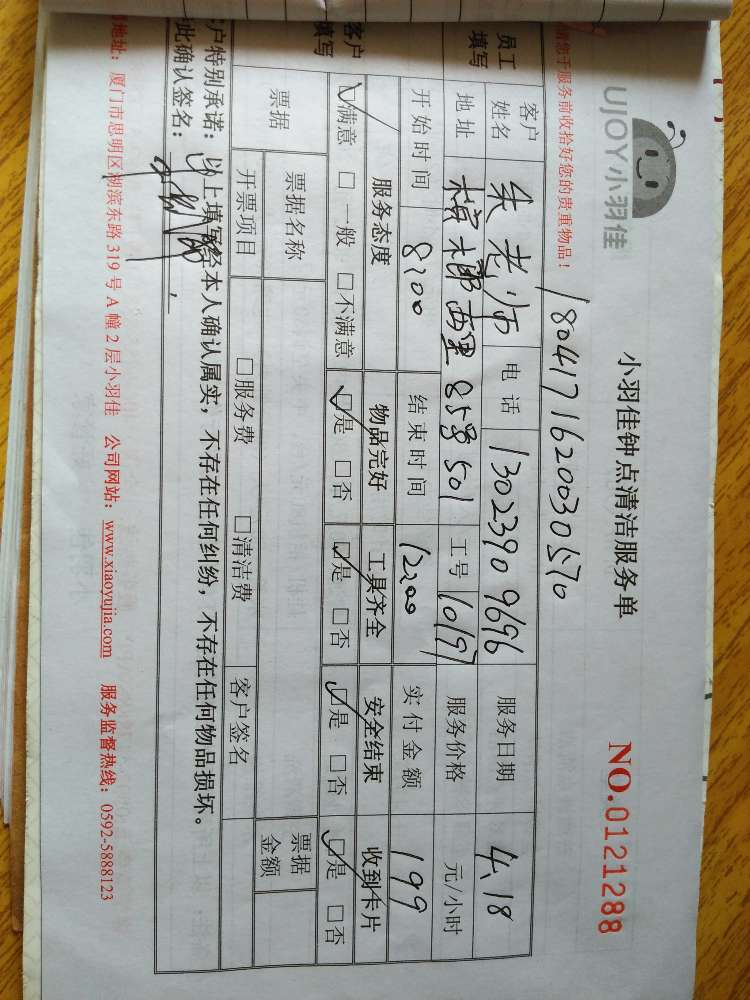 UJOY小羽佳
小羽佳钟点清洁服务单
NO.0121288
请您于服务前收拾好您的贵重物品!
180417162003 0570
员工填写
客户姓名 朱老师 电话 13023909696 服务日期 4.18
地址 槟榔西里 858 501 工号 10197 服务价格 元/小时
开始时间 8:00 结束时间 12:00 实付金额 199
客户填写
服务态度 物品完好 工具齐全 安全结束 收到卡片
☑满意 □一般 □不满意 ☑是 □否 ☑是 □否 ☑是 □否 ☑是 □否
票据 票据名称 票据金额
开票项目 □服务费 □清洁费 客户签名
户特别承诺:以上填写经本人确认属实,不存在任何纠纷,不存在任何物品损坏。
此确认签名:
地址:厦门市思明区湖滨东路 319 号 A 幢 2 层小羽佳 公司网站:www.xiaoyujia.com 服务监督热线:0592-5888123